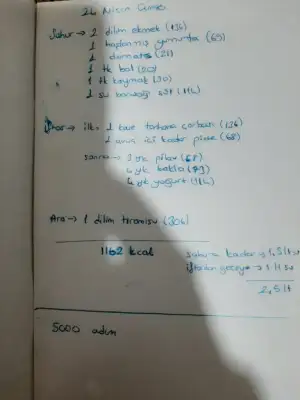 24 Nisan Cuma
Sahur → 2 dilim ekmek (136)
1 haşlanmış yumurta (69)
1 domates (21)
1 tk bal (20)
1 tk kaymak (30)
1 su bardağı süt (114)
İftar → ilk → 1 kase tarhana çorbası (136)
1 avuç içi kadar pide (68)
sonra → 3 yk pilav (68)
4 yk bakla (79)
4 yk yoğurt (114)
Ara → 1 dilim tiramisu (304)
1162 kcal
sahura kadar → 1,5 lt su
iftardan geceye → 1 lt su
2,5 lt
5000 adım